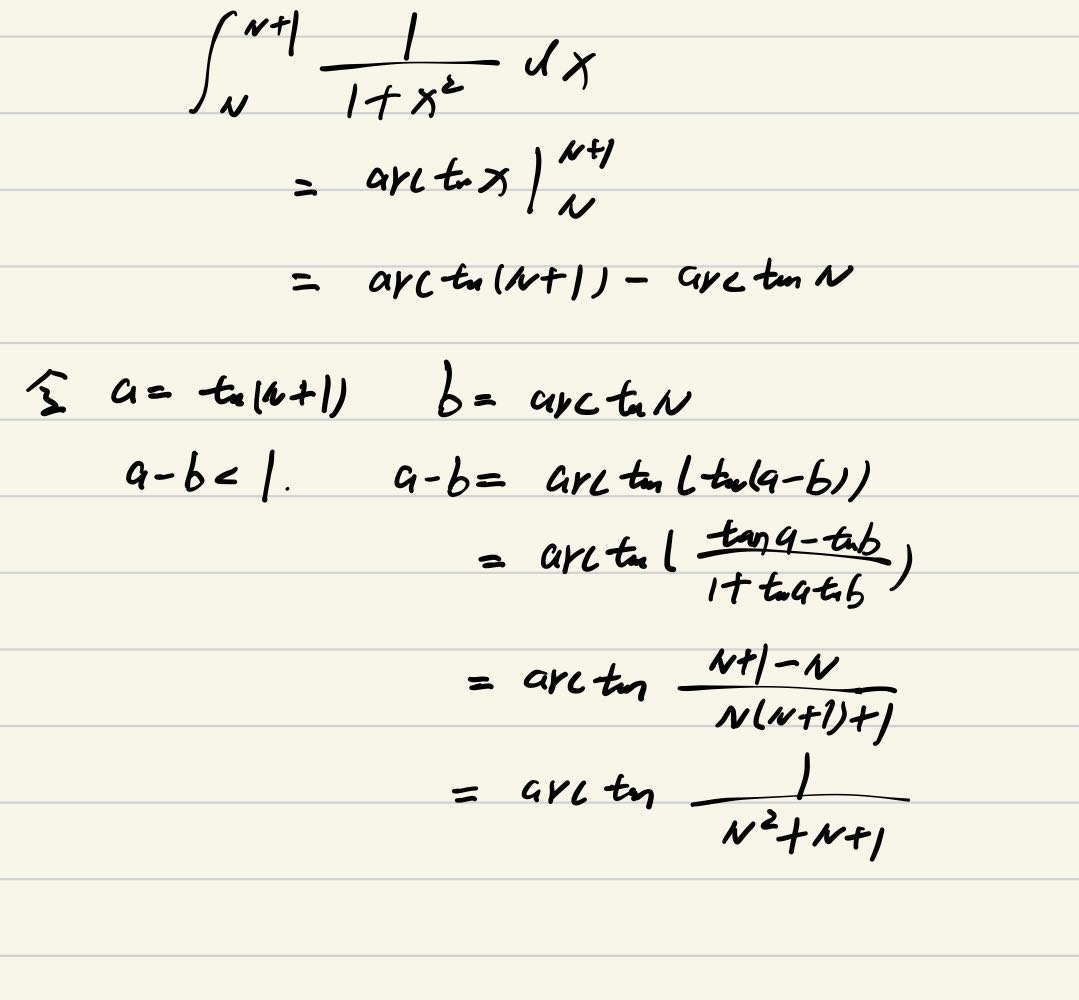 ∫_N^{N+1} 1/(1+x²) dx
= arctan x |_N^{N+1}
= arctan(N+1) - arctan N
令 a = tan(N+1) b = arctan N
a-b < 1. a-b = arctan(tan(a-b))
= arctan((tan a - tan b)/(1+tan a tan b))
= arctan (N+1-N)/(N(N+1)+1)
= arctan 1/(N²+N+1)